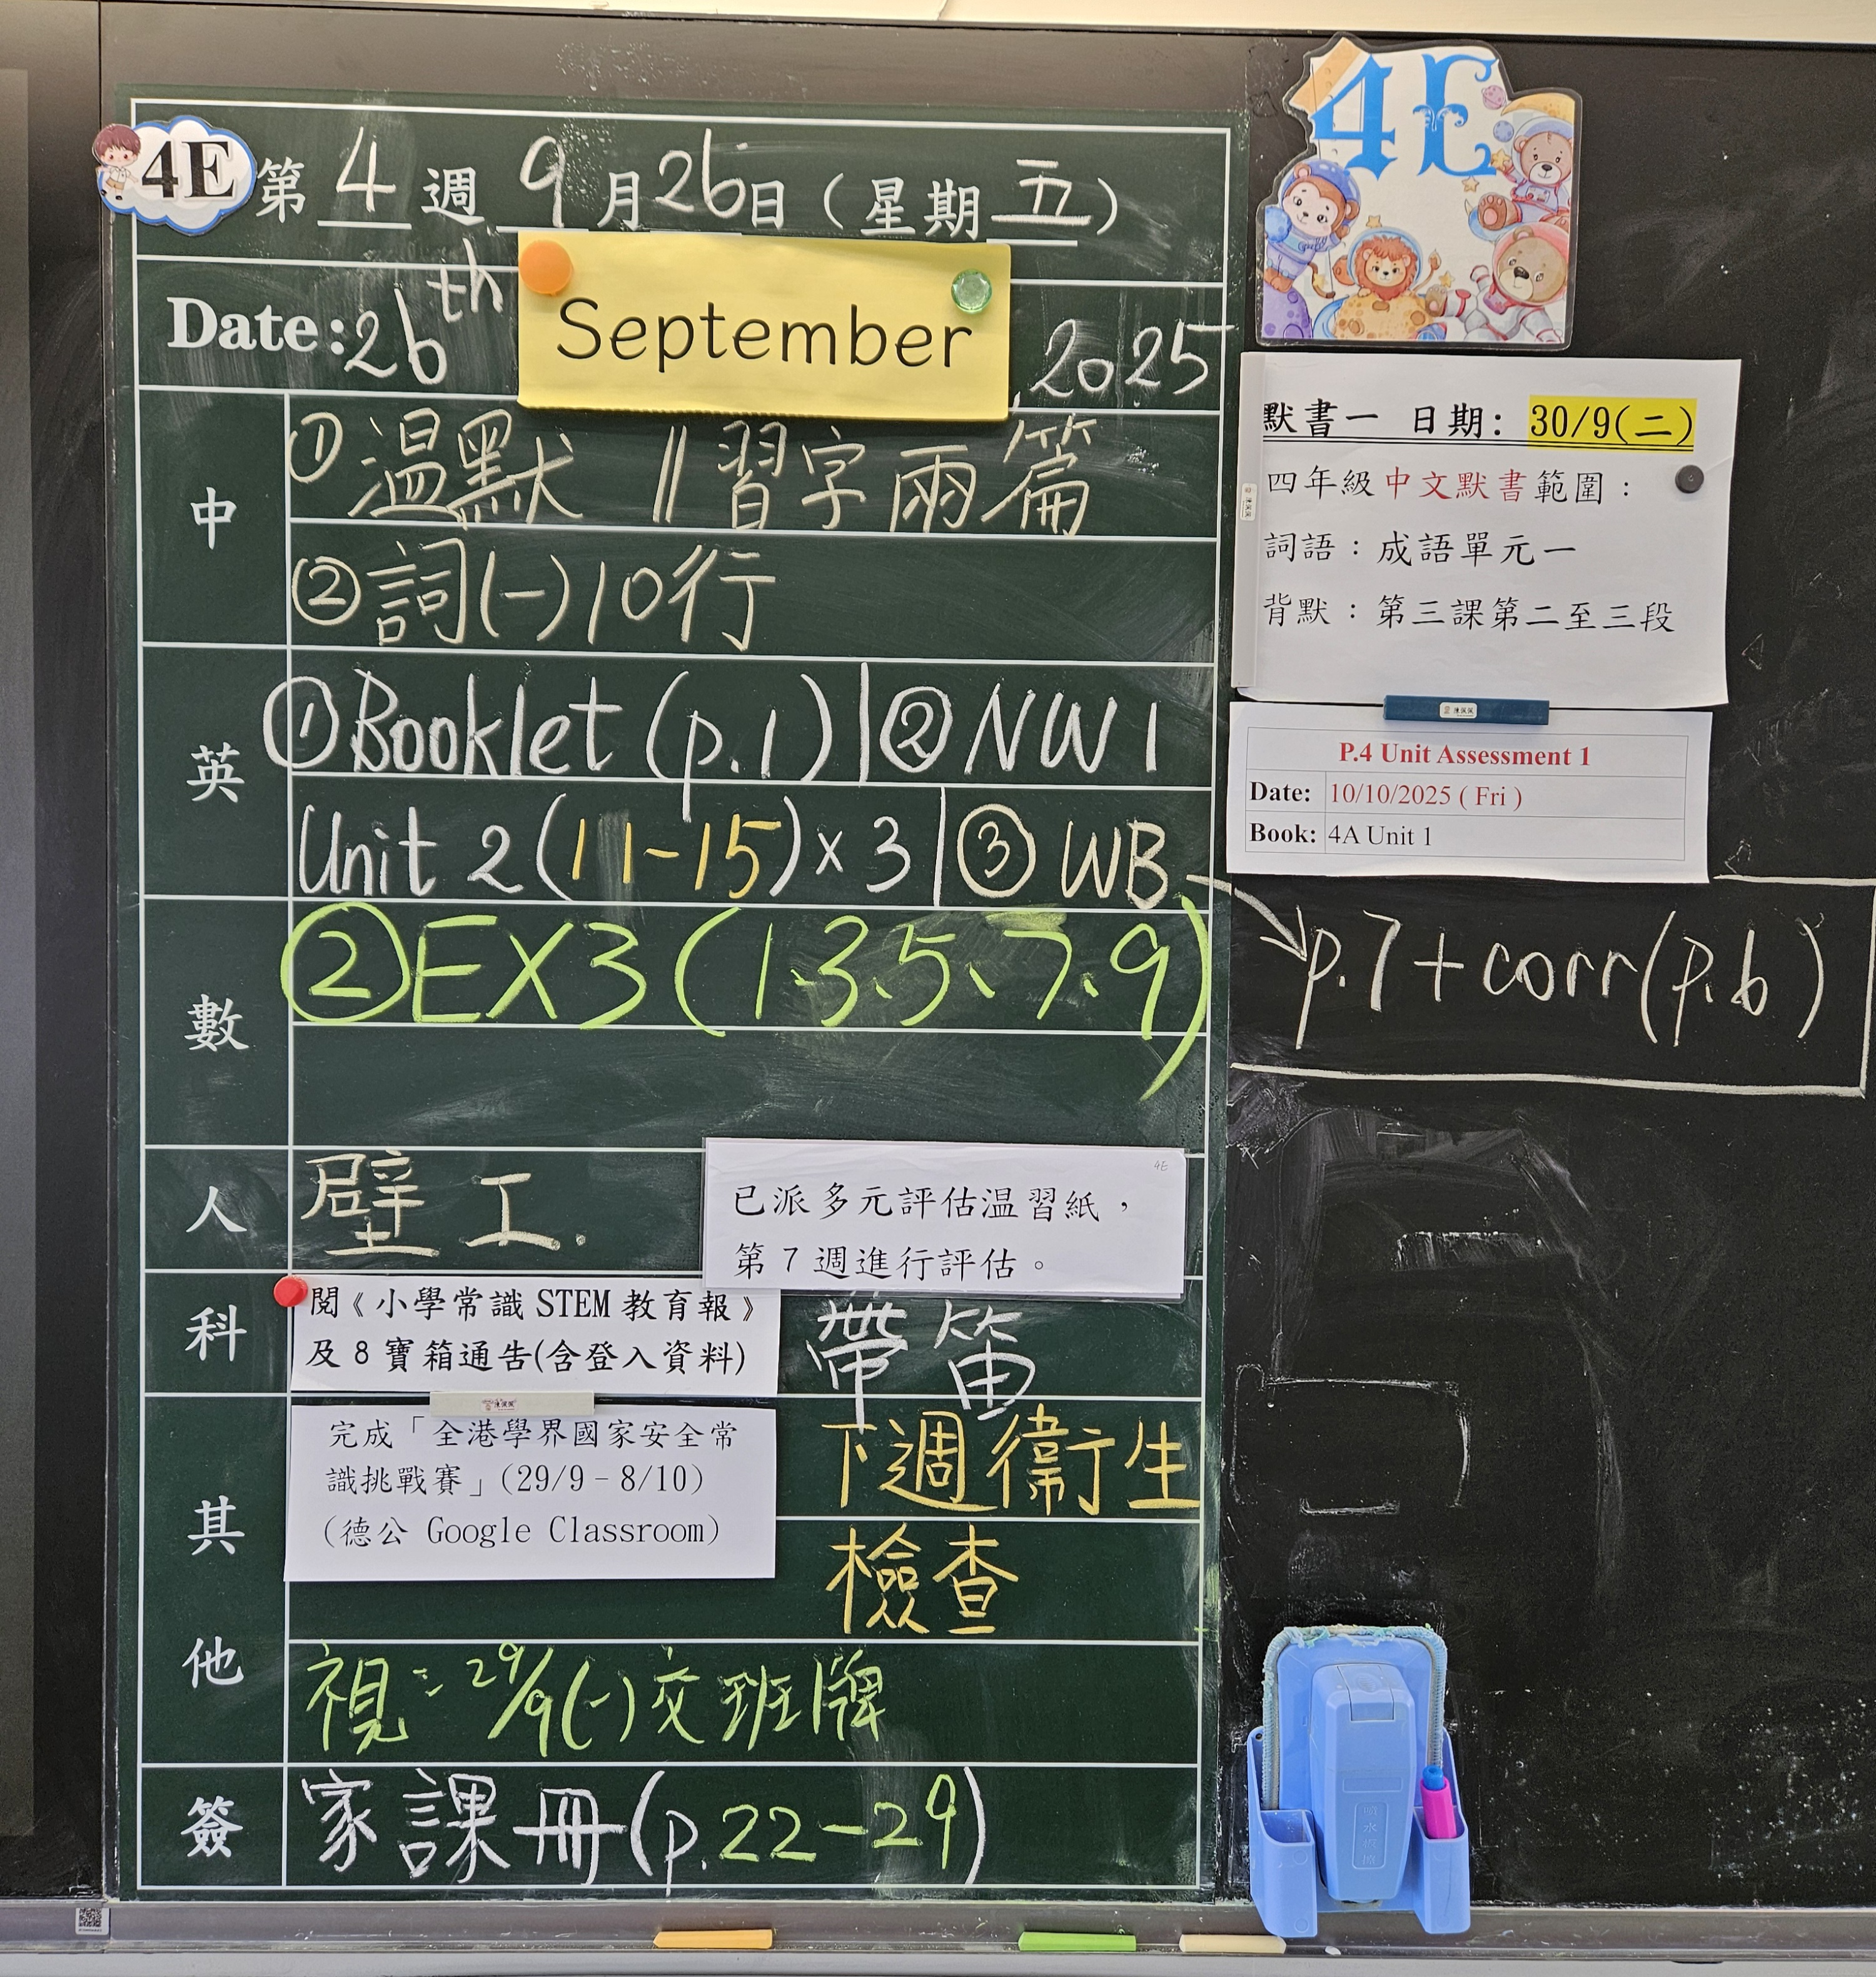 4E
第 4 週 9 月 26 日（星期 五）
Date: 26th September, 2025
中
① 温默 // 習字兩篇
② 詞(一)10行
英
① Booklet (p.1) | ② NW1
Unit 2 (11-15) x 3 | ③ WB
p.7 + corr(p.6)
數
② EX3 (1、3、5、7、9)
人
壁工.
4E
已派多元評估温習紙，
第 7 週進行評估。
科
閱《小學常識 STEM 教育報》
及 8 寶箱通告(含登入資料)
帶笛
其他
完成「全港學界國家安全常
識挑戰賽」(29/9 – 8/10)
（德公 Google Classroom）
下週衞生
檢查
視：29/9(一)交班牌
簽
家課冊(p.22-29)
4E
默書一 日期: 30/9(二)
四年級中文默書範圍：
詞語：成語單元一
背默：第三課第二至三段
P.4 Unit Assessment 1
Date: 10/10/2025 ( Fri )
Book: 4A Unit 1